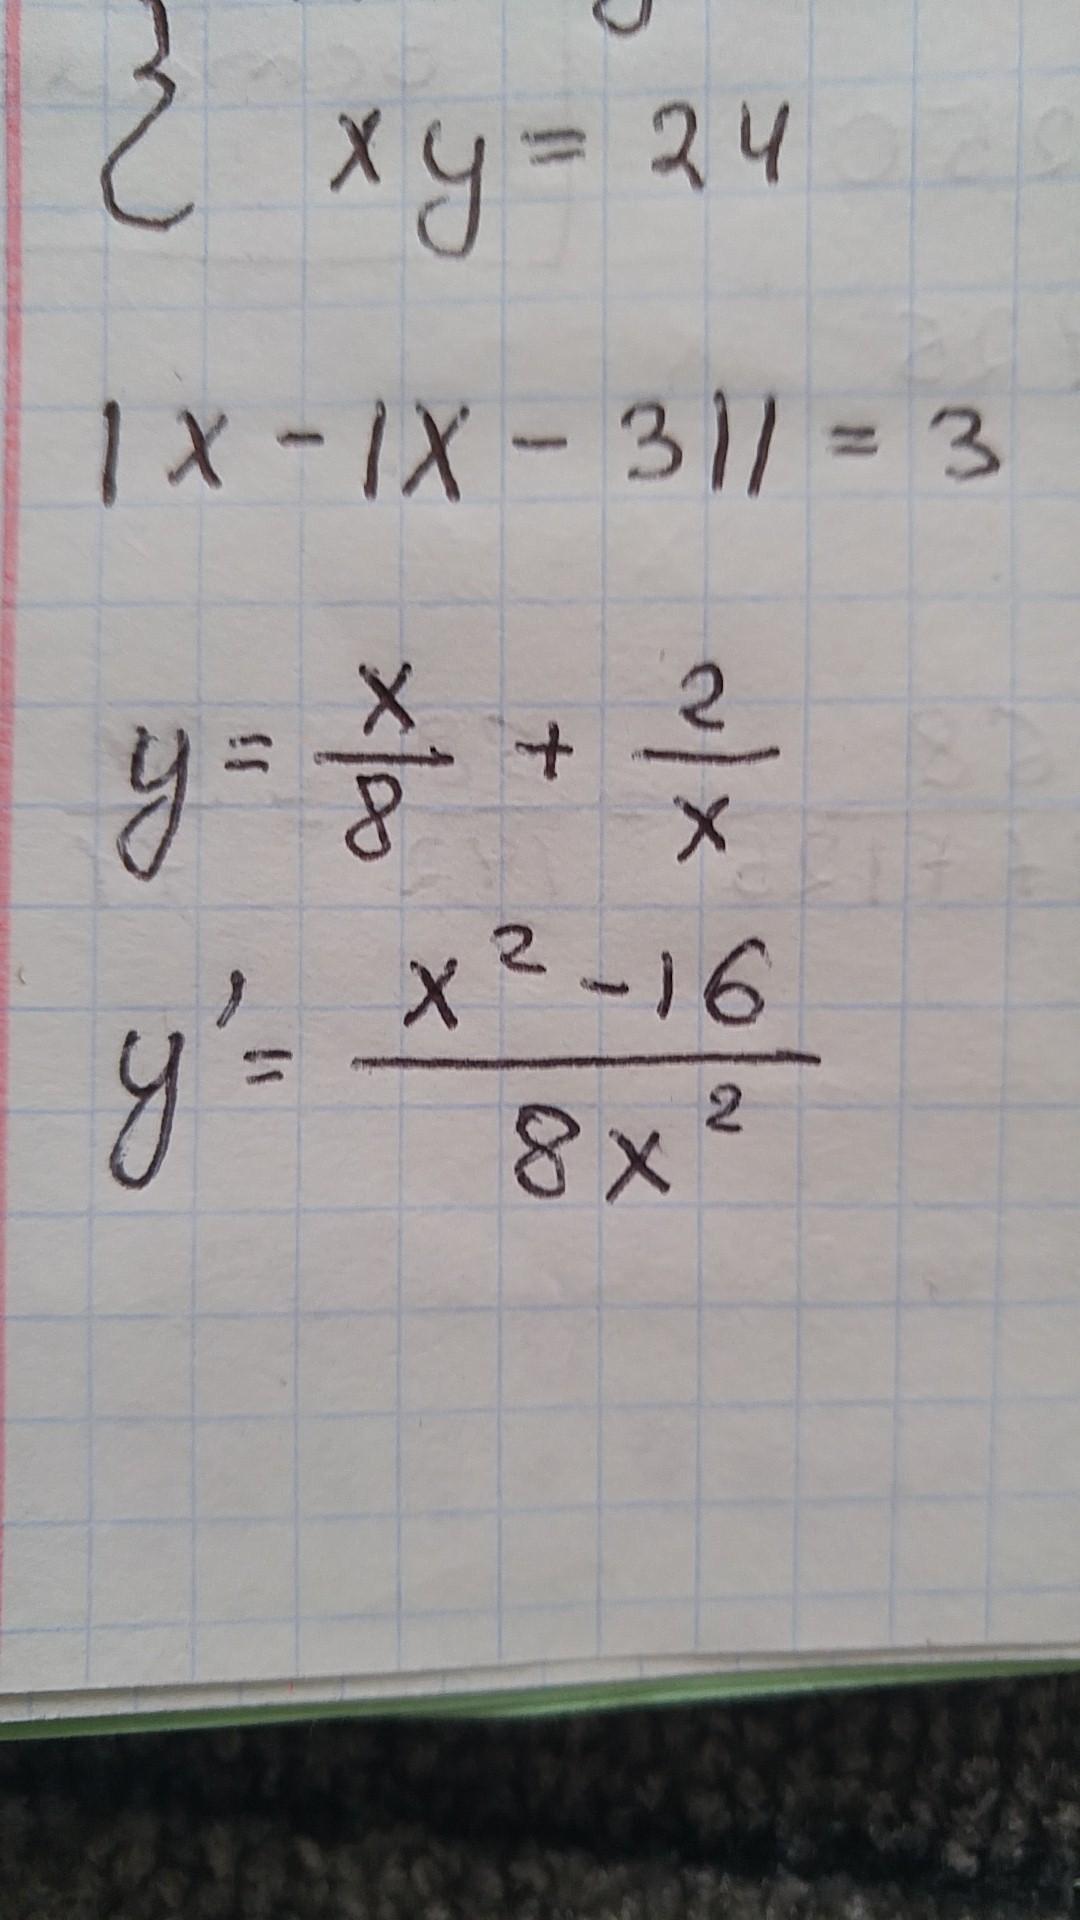 xy = 24
|x - |x - 3|| = 3
y = x/8 + 2/x
y' = (x² - 16)/(8x²)